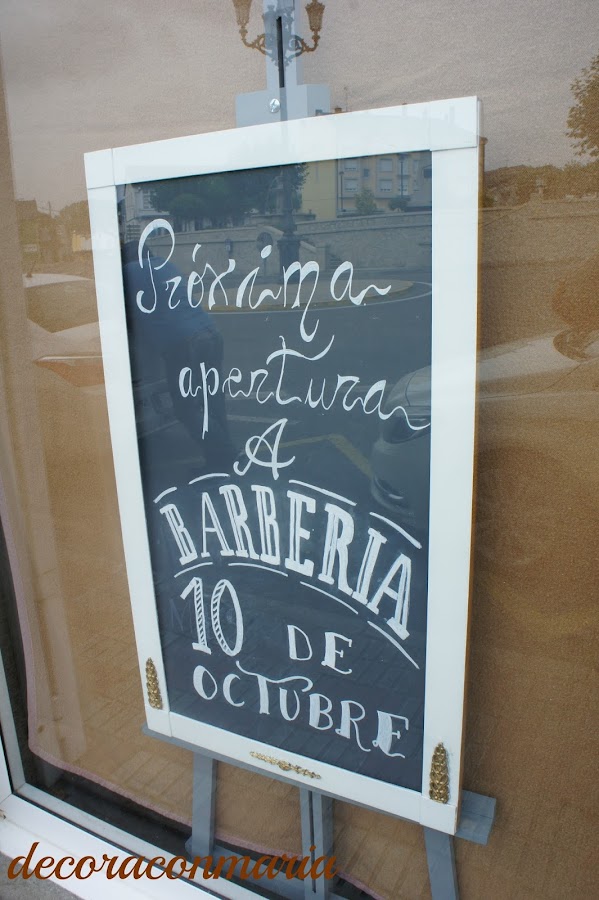 Próxima
apertura
A
BARBERIA
10 DE
OCTUBRE
decoraconmaria